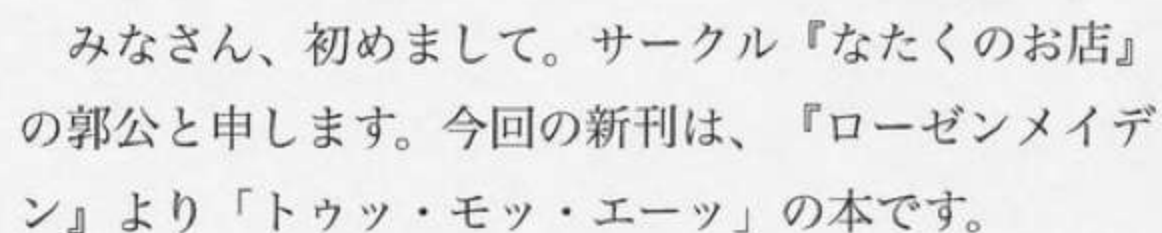 みなさん、初めまして。サークル『なたくのお店』
の郭公と申します。今回の新刊は、『ローゼンメイデ
ン』より「トゥッ・モッ・エーッ」の本です。